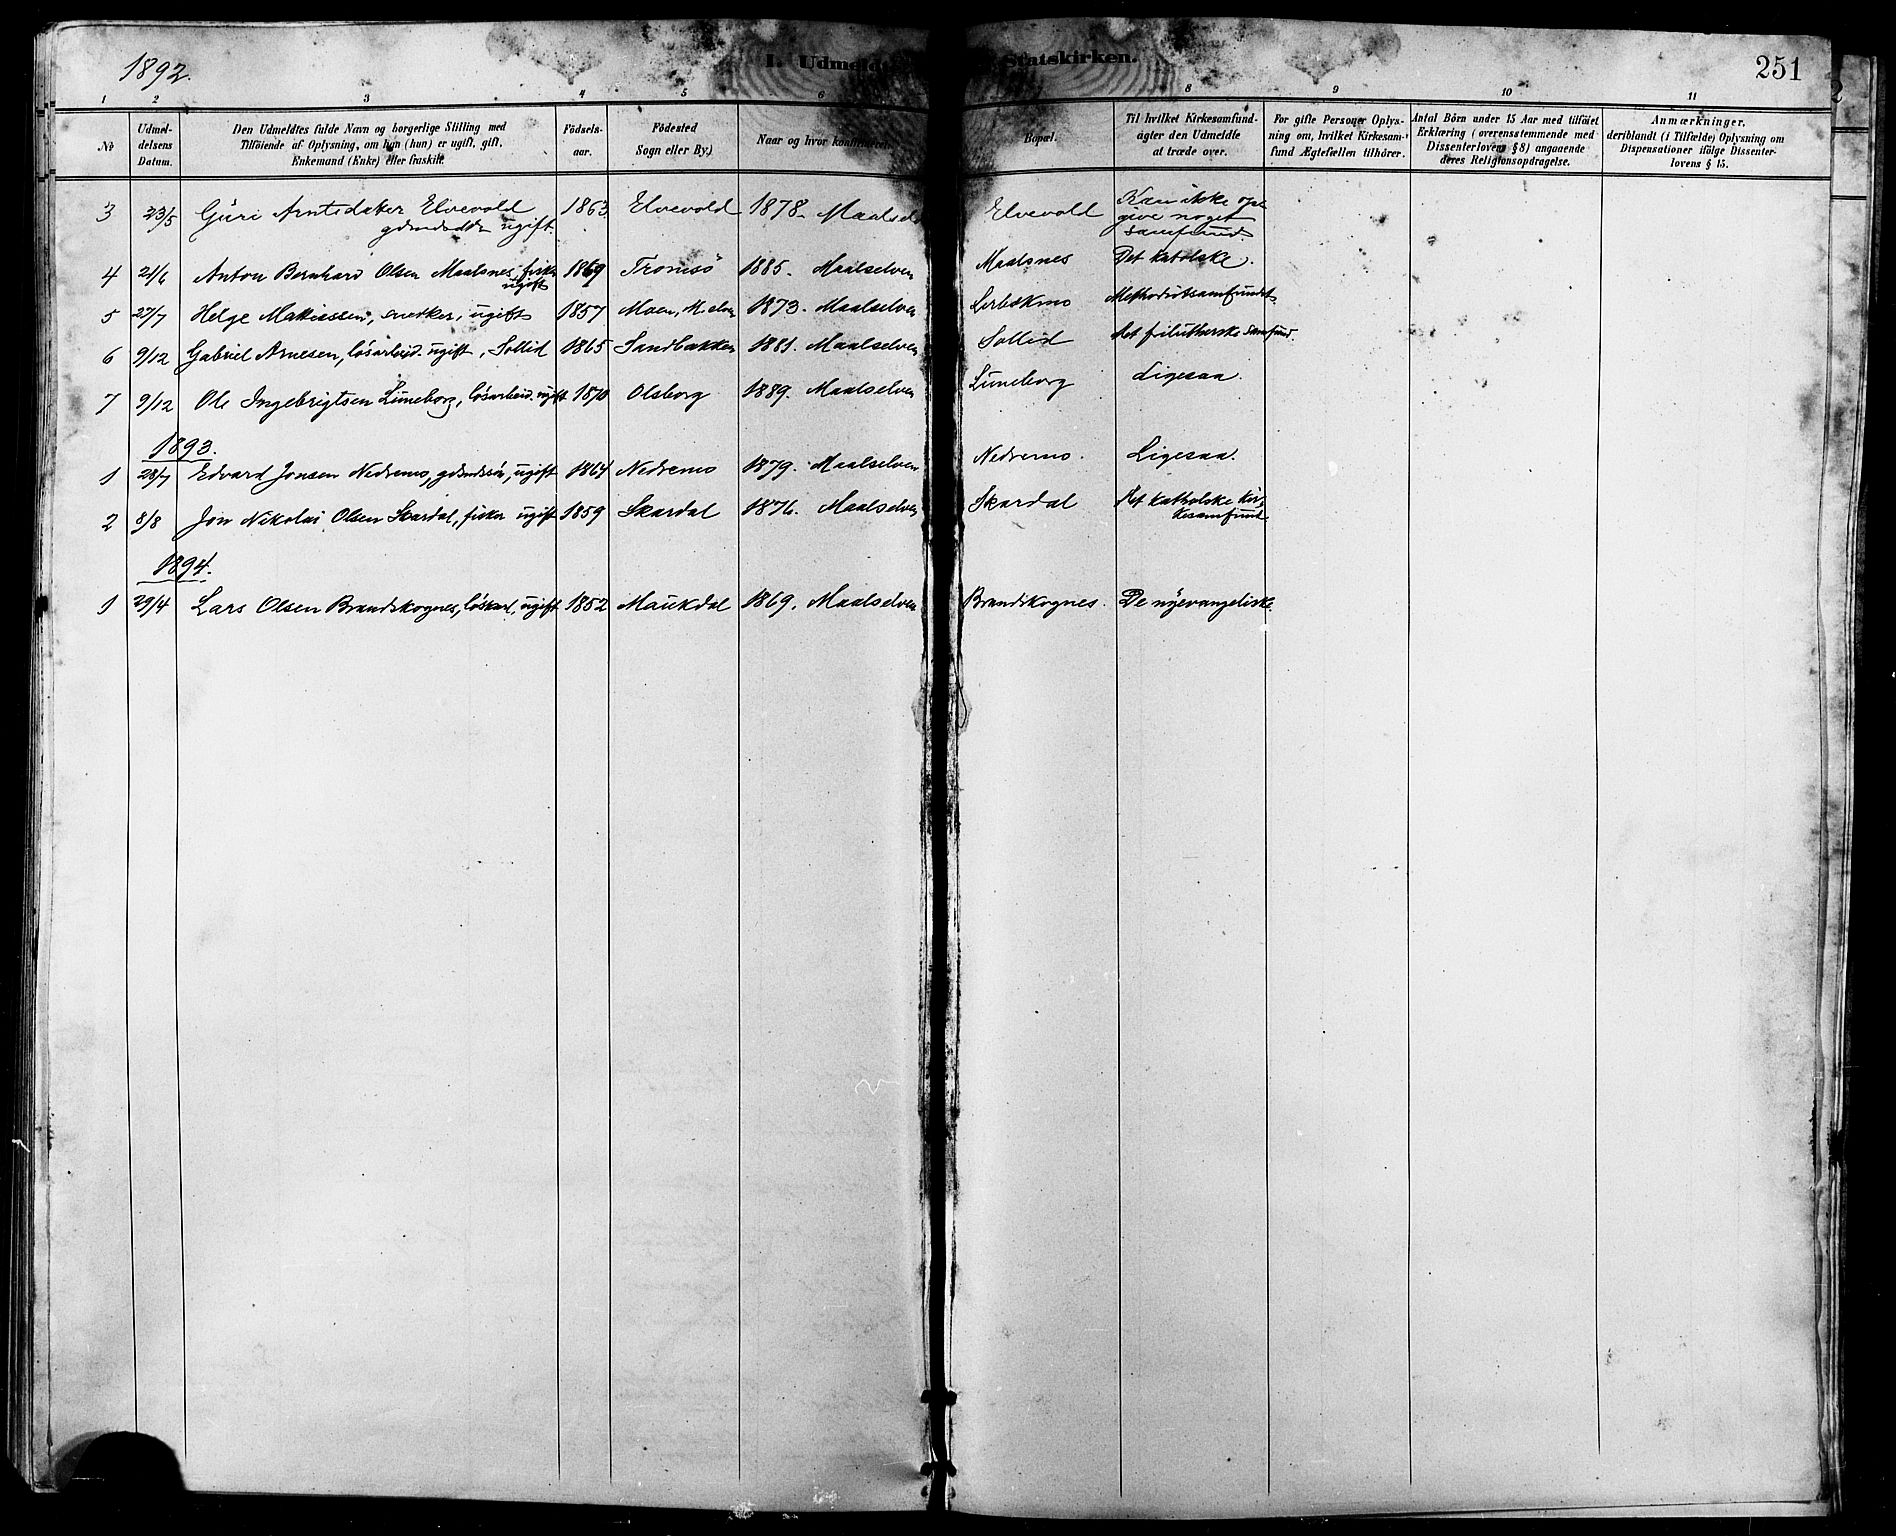 1892.
I. Udmeldt Statskirken.
251
1 2 3 4 5 6 8 9 10 11
No
Udmel-
delsens
Datum.
Den Udmeldtes fulde Navn og borgerlige Stilling med
Tilföiende af Oplysning, om han (hun) er ugift, gift,
Enkemand (Enke) eller fraskilt.
Födsels-
aar.
Födested
Sogn eller By.)
Naar og hvor konfirmeret.
Bopæl.
Til hvilket Kirkesamfund
agter den Udmeldte
at træde over.
For gifte Personer Oplys-
ning om, hvilket Kirkesam-
fund Ægtefællen tilhörer.
Antal Börn under 15 Aar med tilföiet
Erklæring (overensstemmende med
Dissenterlovens § 8) angaaende
deres Religionsopdragelse.
Anmærkninger,
deriblandt (i Tilfælde) Oplysning om
Dispensationer ifölge Dissenter-
lovens § 15.
3 23/5 Guri Arntsdatter Elvevold 1863 Elvevold 1878. Maalselv Elvevold Kan ikke op-
ugift. give noget
samfund.
4 21/6 Anton Bernhard Olsen Maalsnes, fisker 1869 Tromsö 1885. Maalselven Maalsnes Det katolske.
ugift
5 27/7 Helge Mathiassen, snedker, ugift 1857 Moen, M.elven 1873. Maalselven Methodistsamfundet
6 9/12 Gabriel Arnesen, løsarbeid. ugift, Sollid 1865 Sandbakken 1881. Maalselven Sollid Det frilutherske samfund.
7 9/12 Ole Ingebrigtsen Luneborg, løsarbeid. ugift 1870 Olsborg 1889. Maalselven Luneborg Ligesaa.
1893.
1 28/7 Edvard Jonsen Nedremo, gdmdssön, ugift 1864 Nedremo 1879. Maalselven Nedremo. Ligesaa.
2 8/8 Jon Nikolai Olsen Skardal, fisker ugift 1859 Skardal 1876. Maalselven Skardal Det katholske Kir-
kesamfund.
1894.
1 29/4 Lars Olsen Brandskognes, løskarl, ugift 1852 Maukdal 1869. Maalselven Brandskognes. De nyevangeliske.